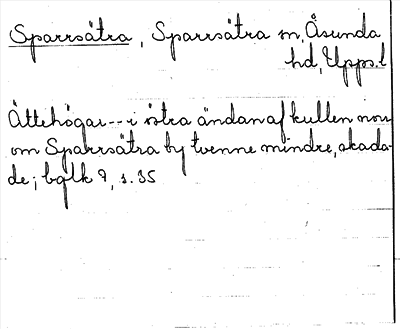 Sparrsätra, Sparrsätra sn, Åsunda
hd, Upps. l
Ättehögar -- i östra ändan af kullen norr
om Sparrsätra by tvenne mindre, skada-
de; bglk 9, s. 35